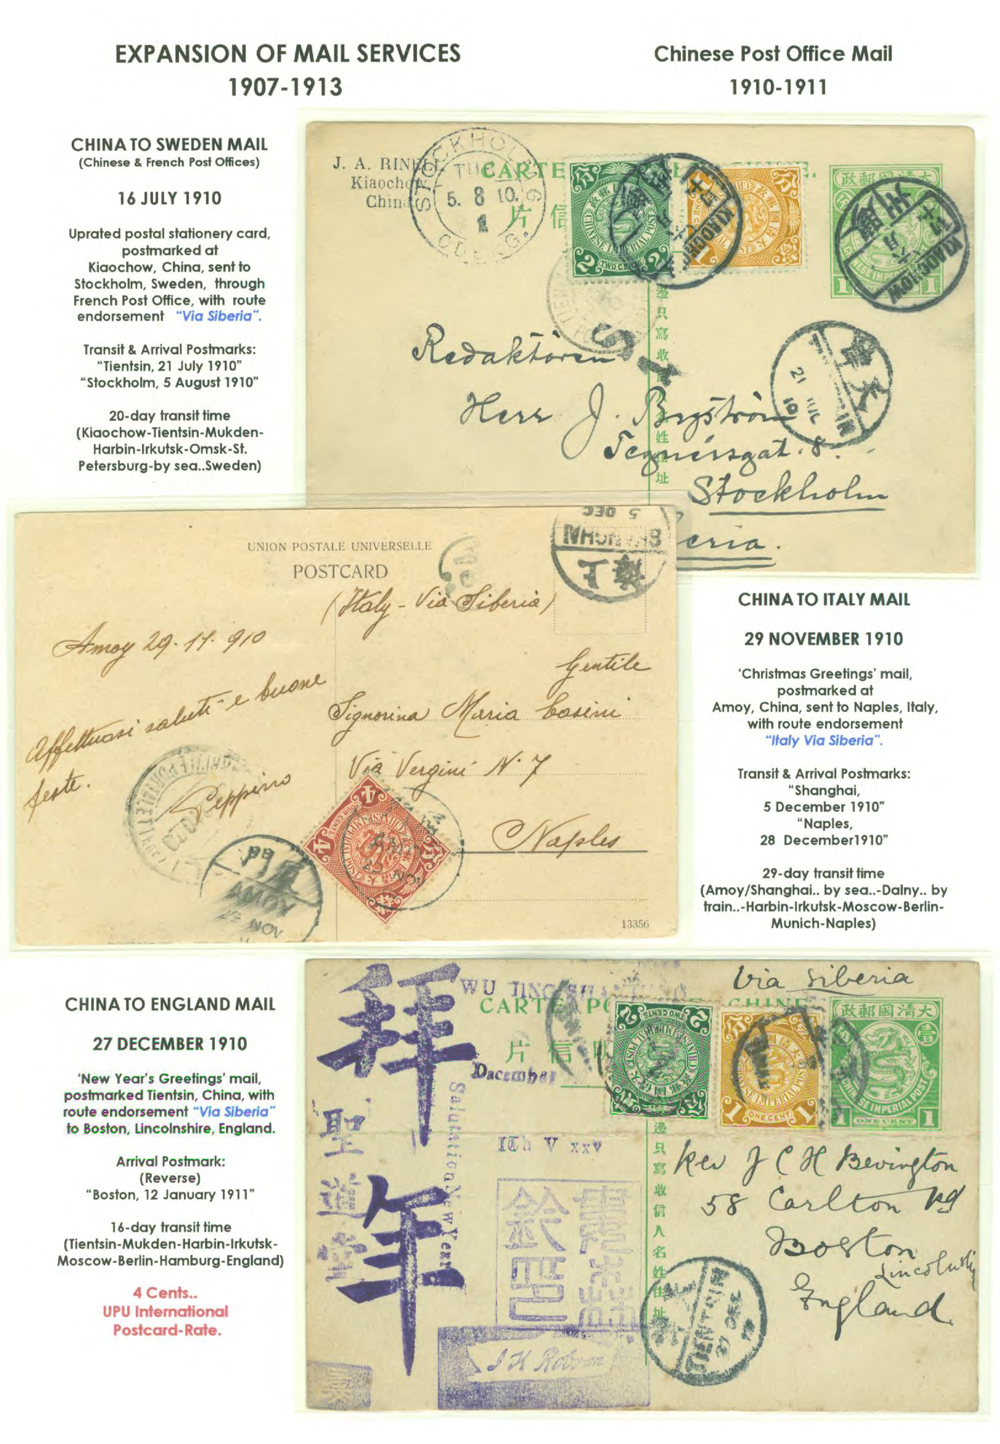 EXPANSION OF MAIL SERVICES
1907-1913
Chinese Post Office Mail
1910-1911
CHINA TO SWEDEN MAIL
(Chinese & French Post Offices)
16 JULY 1910
Uprated postal stationery card,
postmarked at
Kiaochow, China, sent to
Stockholm, Sweden, through
French Post Office, with route
endorsement "Via Siberia".
Transit & Arrival Postmarks:
"Tientsin, 21 July 1910"
"Stockholm, 5 August 1910"
20-day transit time
(Kiaochow-Tientsin-Mukden-
Harbin-Irkutsk-Omsk-St.
Petersburg-by sea..Sweden)
J. A. RINELL
Kiaochow
China
CARTE
STOCKHOLM
TUR
5. 8 10.
片 信
大清國郵政
2 TWO CENTS 2
1
1
KIAOCHOW
KIAOCHOW
膠州
天津
21 JUL 10
Redaktören
Herr J. Byström
Tegnérsgat. 8.
Stockholm
eria.
UNION POSTALE UNIVERSELLE
POSTCARD
SHANGHAI
5 DEC
上海
(Italy - Via Siberia)
Amoy 29-11-910
Affettuosi saluti e buone
feste.
Peppino
Gentile
Signorina Maria Cosini
Via Vergini N° 7
Naples
AMOY
NOV
13356
CHINA TO ITALY MAIL
29 NOVEMBER 1910
'Christmas Greetings' mail,
postmarked at
Amoy, China, sent to Naples, Italy,
with route endorsement
"Italy Via Siberia".
Transit & Arrival Postmarks:
"Shanghai,
5 December 1910"
"Naples,
28 December1910"
29-day transit time
(Amoy/Shanghai.. by sea..-Dalny.. by
train..-Harbin-Irkutsk-Moscow-Berlin-
Munich-Naples)
CHINA TO ENGLAND MAIL
27 DECEMBER 1910
'New Year's Greetings' mail,
postmarked Tientsin, China, with
route endorsement "Via Siberia"
to Boston, Lincolnshire, England.
Arrival Postmark:
(Reverse)
"Boston, 12 January 1911"
16-day transit time
(Tientsin-Mukden-Harbin-Irkutsk-
Moscow-Berlin-Hamburg-England)
4 Cents..
UPU International
Postcard-Rate.
Via Siberia
WU TING
CARTE PO
CHINE
片 信
大清國郵政
TWO CENTS
1 ONE CENT 1
1 ONE CENT 1
拜年
Salutation New Year
December
Rev J C H Bevington
58 Carlton Rd
Boston
Lincolnshire
England
TIENTSIN
DEC